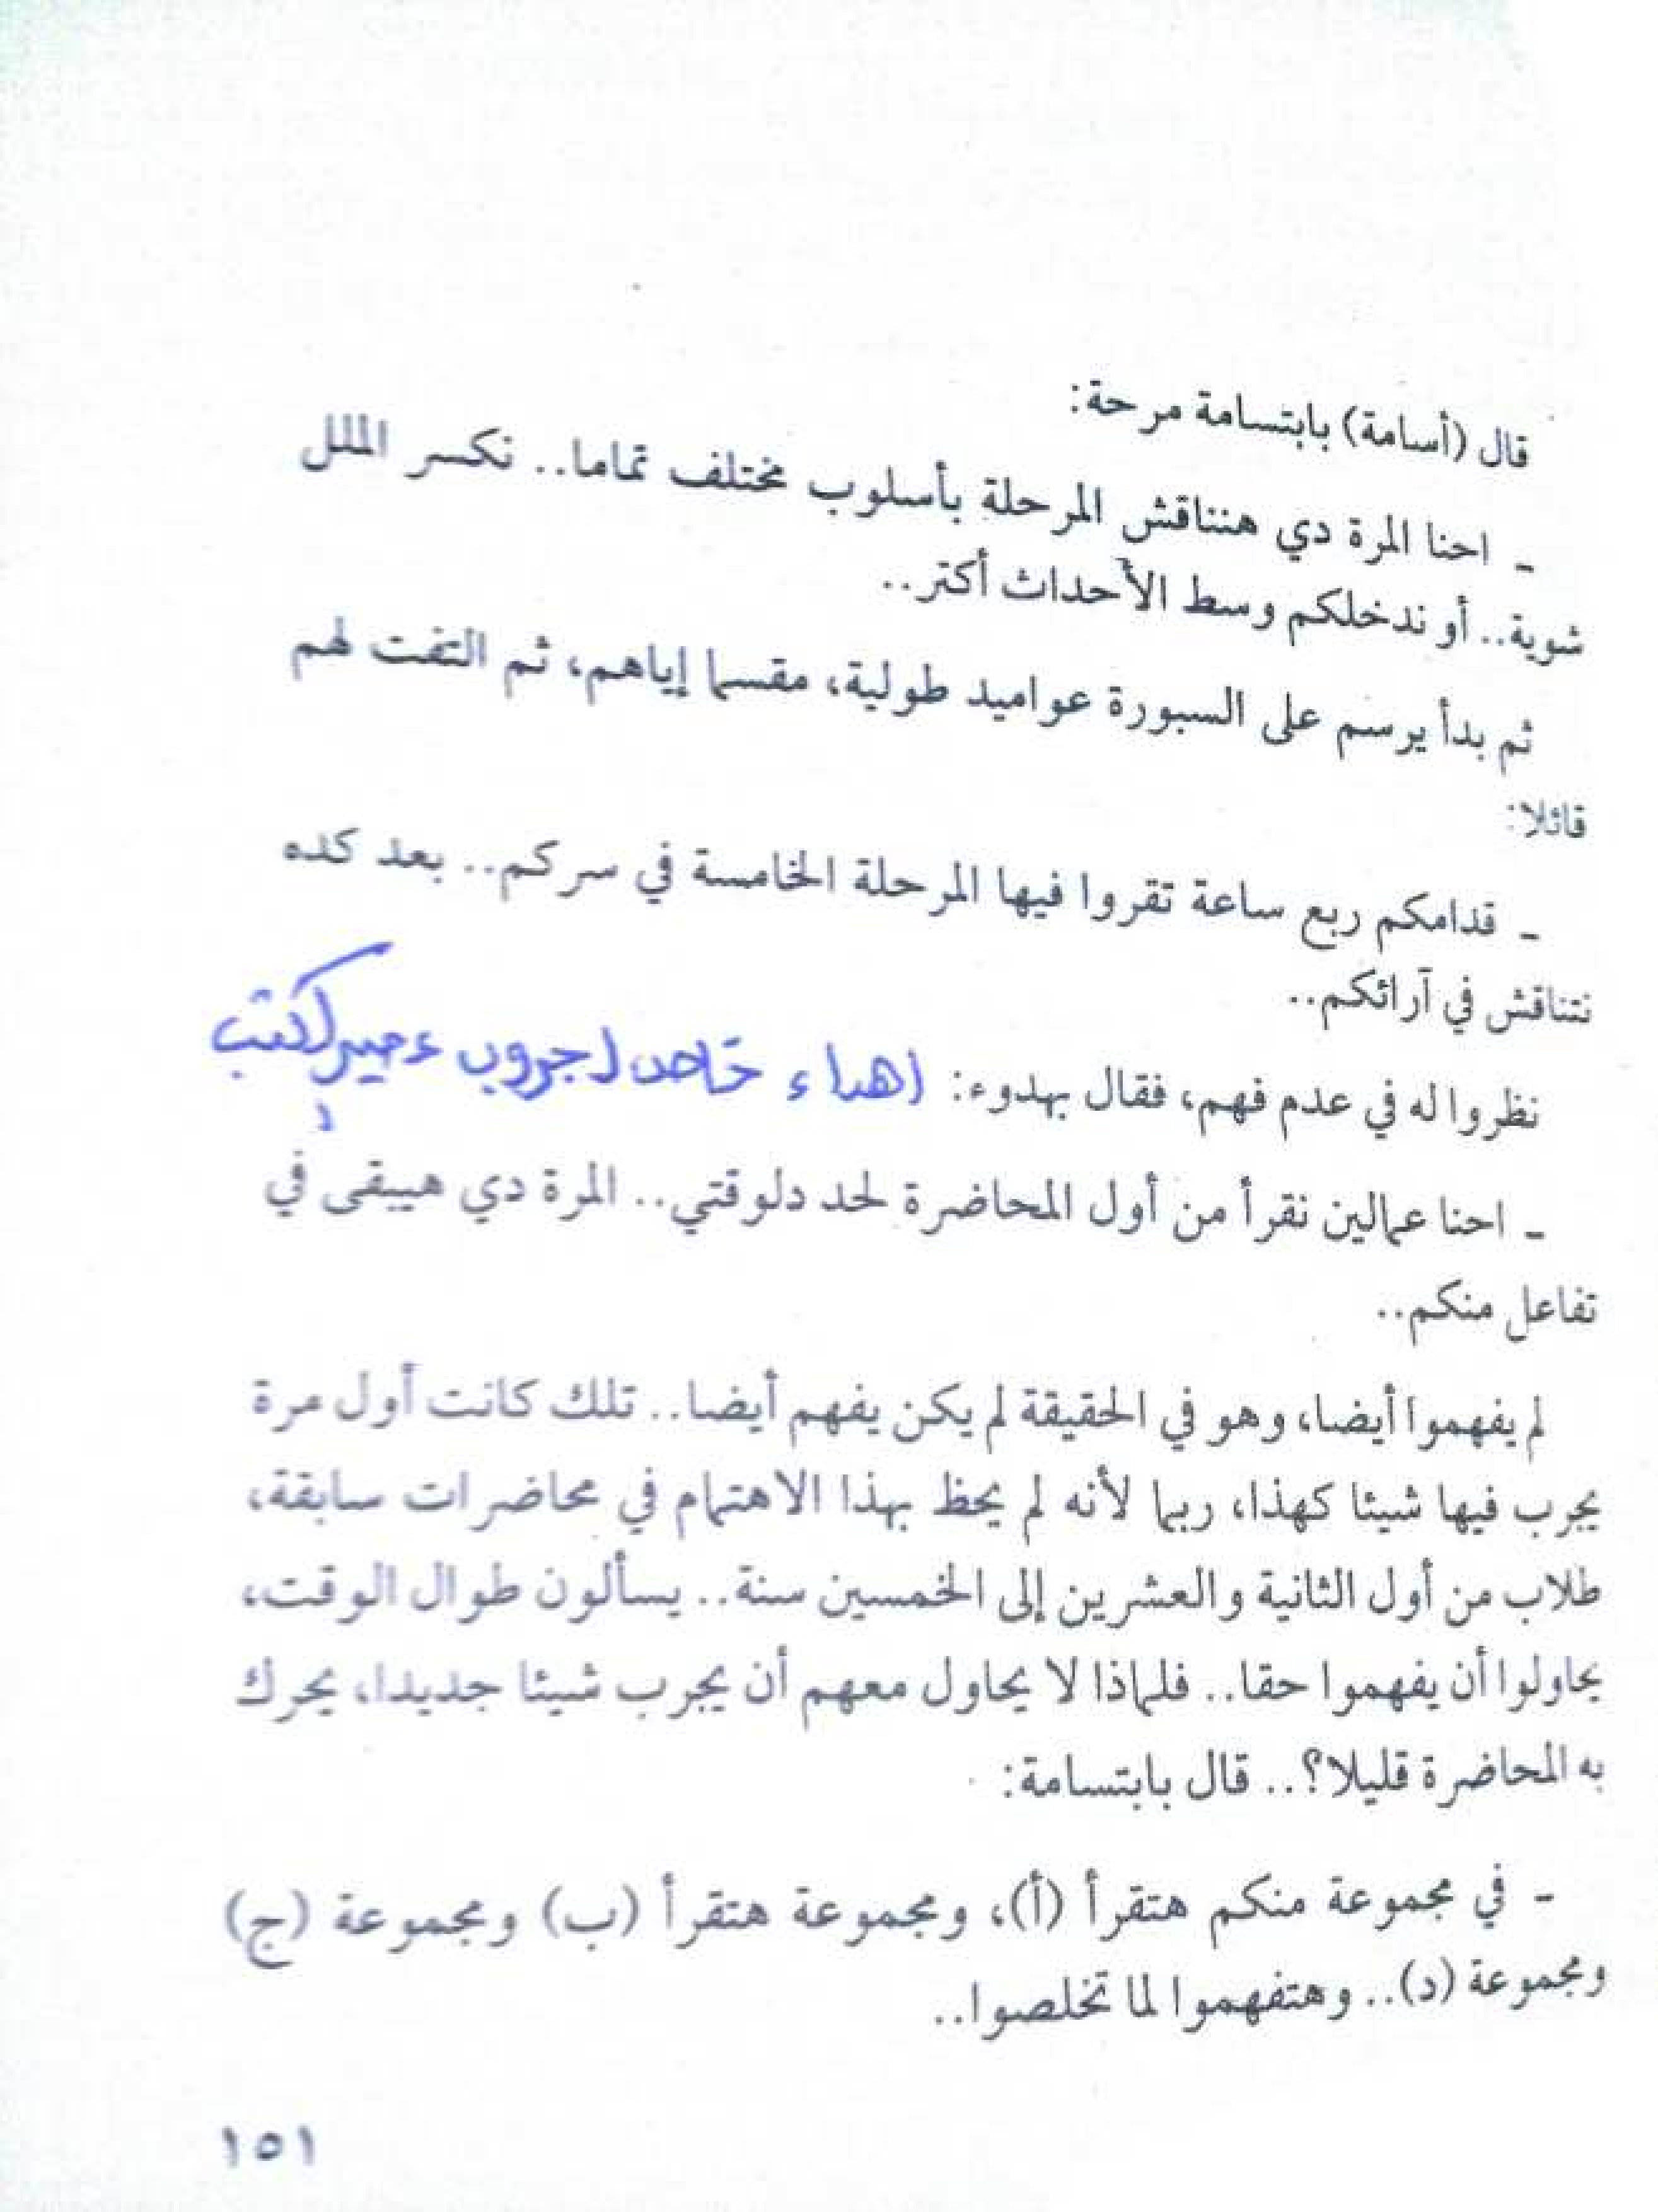 قال (أسامة) بابتسامة مرحة:
- احنا المرة دي هنناقش المرحلة بأسلوب مختلف تماما.. نكسر الملل
شوية.. أو ندخلكم وسط الأحداث أكتر..
ثم بدأ يرسم على السبورة عواميد طولية، مقسما إياهم، ثم التفت لهم
قائلا:
- قدامكم ربع ساعة تقروا فيها المرحلة الخامسة في سركم.. بعد كده
نتناقش في آرائكم..
نظروا له في عدم فهم، فقال بهدوء: اهداء خاص لجروب عصير الكتب
- احنا عمالين نقرأ من أول المحاضرة لحد دلوقتي.. المرة دي هيبقى في
تفاعل منكم..
لم يفهموا أيضا، وهو في الحقيقة لم يكن يفهم أيضا.. تلك كانت أول مرة
يجرب فيها شيئا كهذا، ربما لأنه لم يحظ بهذا الاهتمام في محاضرات سابقة،
طلاب من أول الثانية والعشرين إلى الخمسين سنة.. يسألون طوال الوقت،
يحاولوا أن يفهموا حقا.. فلماذا لا يحاول معهم أن يجرب شيئا جديدا، يحرك
به المحاضرة قليلا؟.. قال بابتسامة:
- في مجموعة منكم هتقرأ (أ)، ومجموعة هتقرأ (ب) ومجموعة (ج)
ومجموعة (د).. وهتفهموا لما تخلصوا..
١٥١